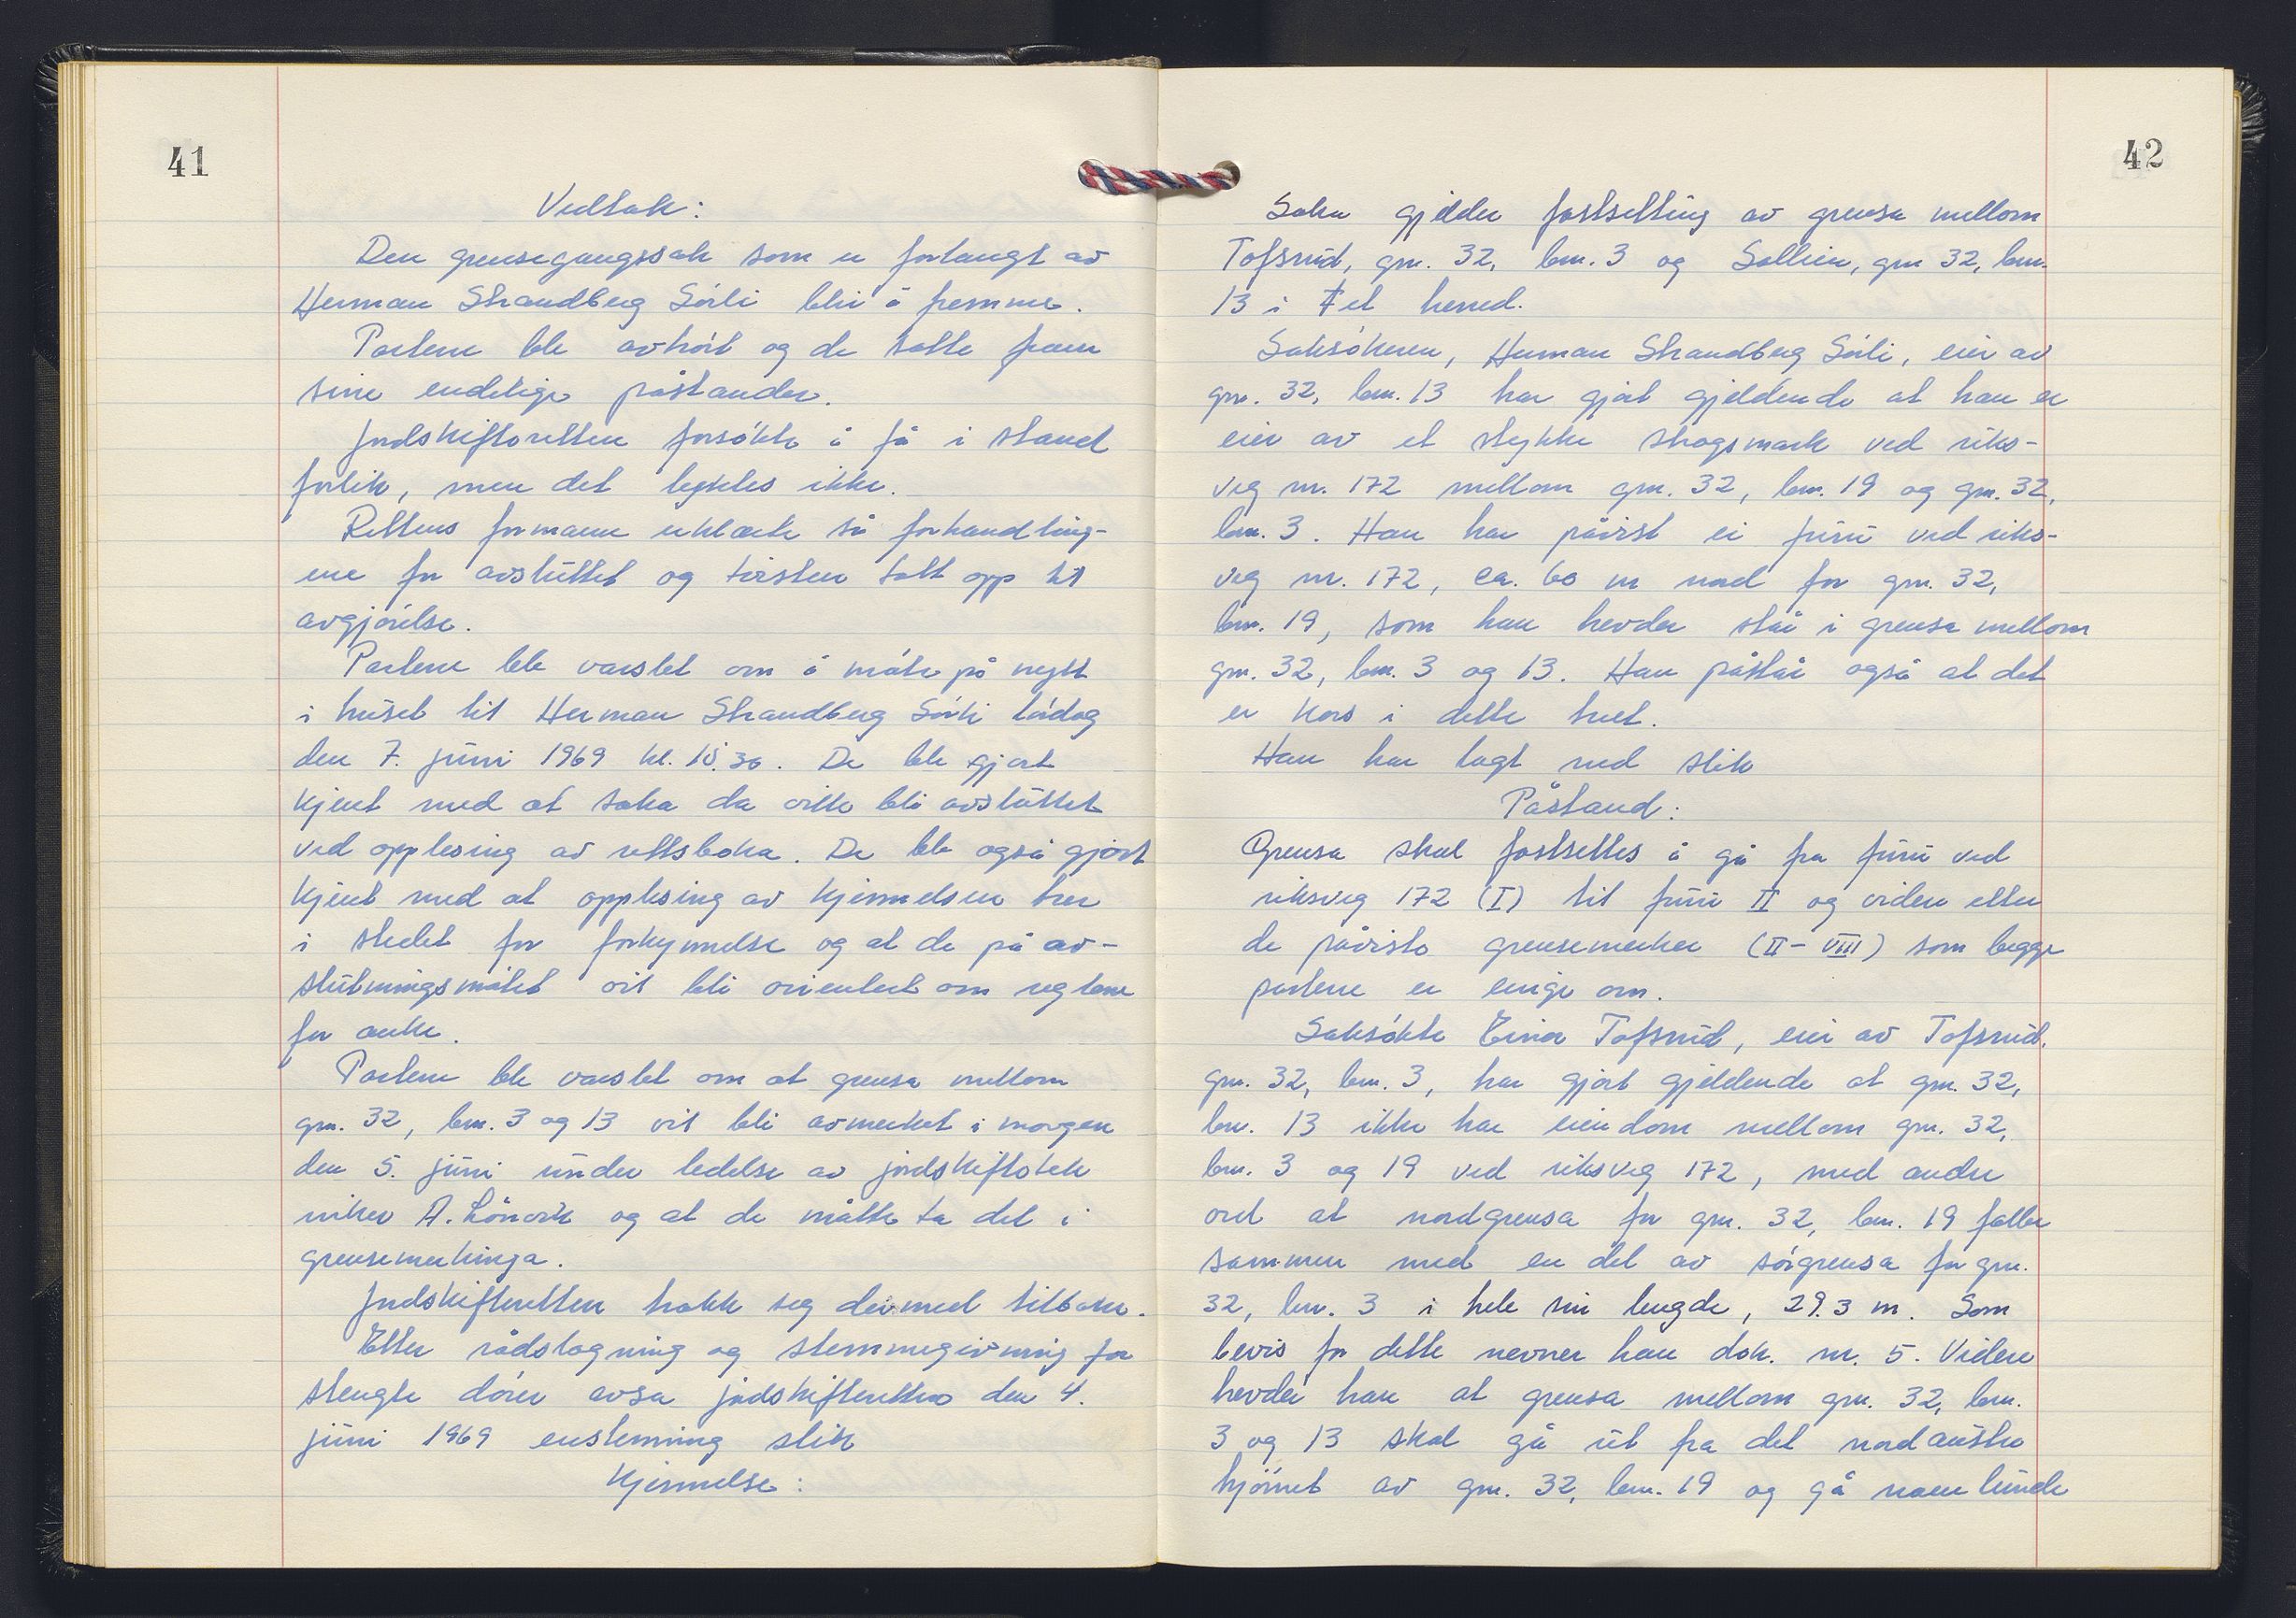 41
Vedtak:
Den grensegangssak som er forlangt av
Herman Strandberg Sörli blir å fremme.
Partene ble avhört og de satte fram
sine endelige påstander.
Jordskifteretten forsökte å få i stand
forlik, men det lyktes ikke.
Rettens formann erklærte så forhandling-
ene for avsluttet og tvisten tatt opp til
avgjörelse.
Partene ble varslet om å möte på nytt
i huset til Herman Strandberg Sörli lördag
den 7. juni 1969 kl. 18.30. De ble gjort
kjent med at saka da ville bli avsluttet
ved opplesing av rettsboka. De ble også gjort
kjent med at opplesing av kjennelsen trer
i stedet for forkynnelse og at de på av-
slutningsmötet vil bli orientert om reglene
for anke.
Partene ble varslet om at grensa mellom
gnr. 32, bnr. 3 og 13 vil bli avmerket i morgen
den 5. juni under ledelse av jordskiftetek
niker A. Lönvik og at de måtte ta del i
grensemerkinga.
Jordskifteretten trakk seg dermed tilbake.
Etter rådslagning og stemmegivning for
stengte dörer avsa jordskifteretten den 4.
juni 1969 enstemmig slik
Kjennelse:
42
Saka gjelder fastsetting av grensa mellom
Tofsrud, gnr. 32, bnr. 3 og Sollien, gnr 32, bnr.
13 i Fet herred.
Saksökeren, Herman Strandberg Sörli, eier av
gnr. 32, bnr. 13 har gjort gjeldende at han er
eier av et stykke skogsmark ved riks-
veg nr. 172 mellom gnr. 32, bnr. 19 og gnr. 32,
bnr. 3. Han har påvist ei furu ved riks-
veg nr. 172, ca. 60 m nord for gnr. 32,
bnr. 19, som han hevder står i grensa mellom
gnr. 32, bnr. 3 og 13. Han påstår også at det
er kors i dette treet.
Han har lagt ned slik
Påstand:
Grensa skal fastsettes å gå fra furu ved
riksveg 172 (I) til furu II og videre etter
de påviste grensemerker (II - VIII) som begge
partene er enige om.
Saksökte Einar Tofsrud, eier av Tofsrud,
gnr. 32, bnr. 3, har gjort gjeldende at gnr. 32,
bnr. 13 ikke har eiendom mellom gnr. 32,
bnr. 3 og 19 ved riksveg 172, med andre
ord at nordgrensa for gnr. 32, bnr. 19 faller
sammen med en del av sörgrensa for gnr.
32, bnr. 3 i hele sin lengde, 29.3 m. Som
bevis for dette nevner han dok. nr. 5. Videre
hevder han at grensa mellom gnr. 32, bnr.
3 og 13 skal gå ut fra det nordaustre
hjörnet av gnr. 32, bnr. 19 og gå noenlunde